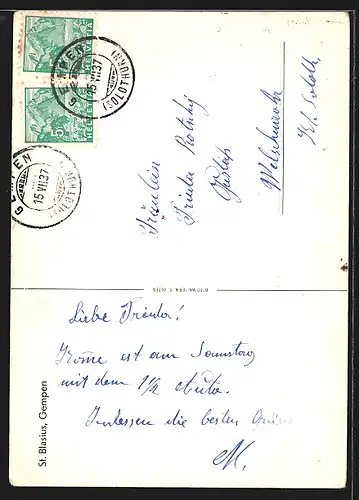 HELVETIA
5
GEMPEN
(SOLOTHURN)
15 VII 37
HELVETIA
5
GEMPEN
(SOLOTHURN)
15 VII 37
Fräulein
Frieda
Welschenrohr
Kt. Soloth.
OTTO WALTER A. G. OLTEN
Liebe
Komme ist am Samstag
mit dem 1½ Auto.
Indessen die besten Grüsse
M.
St. Blasius, Gempen